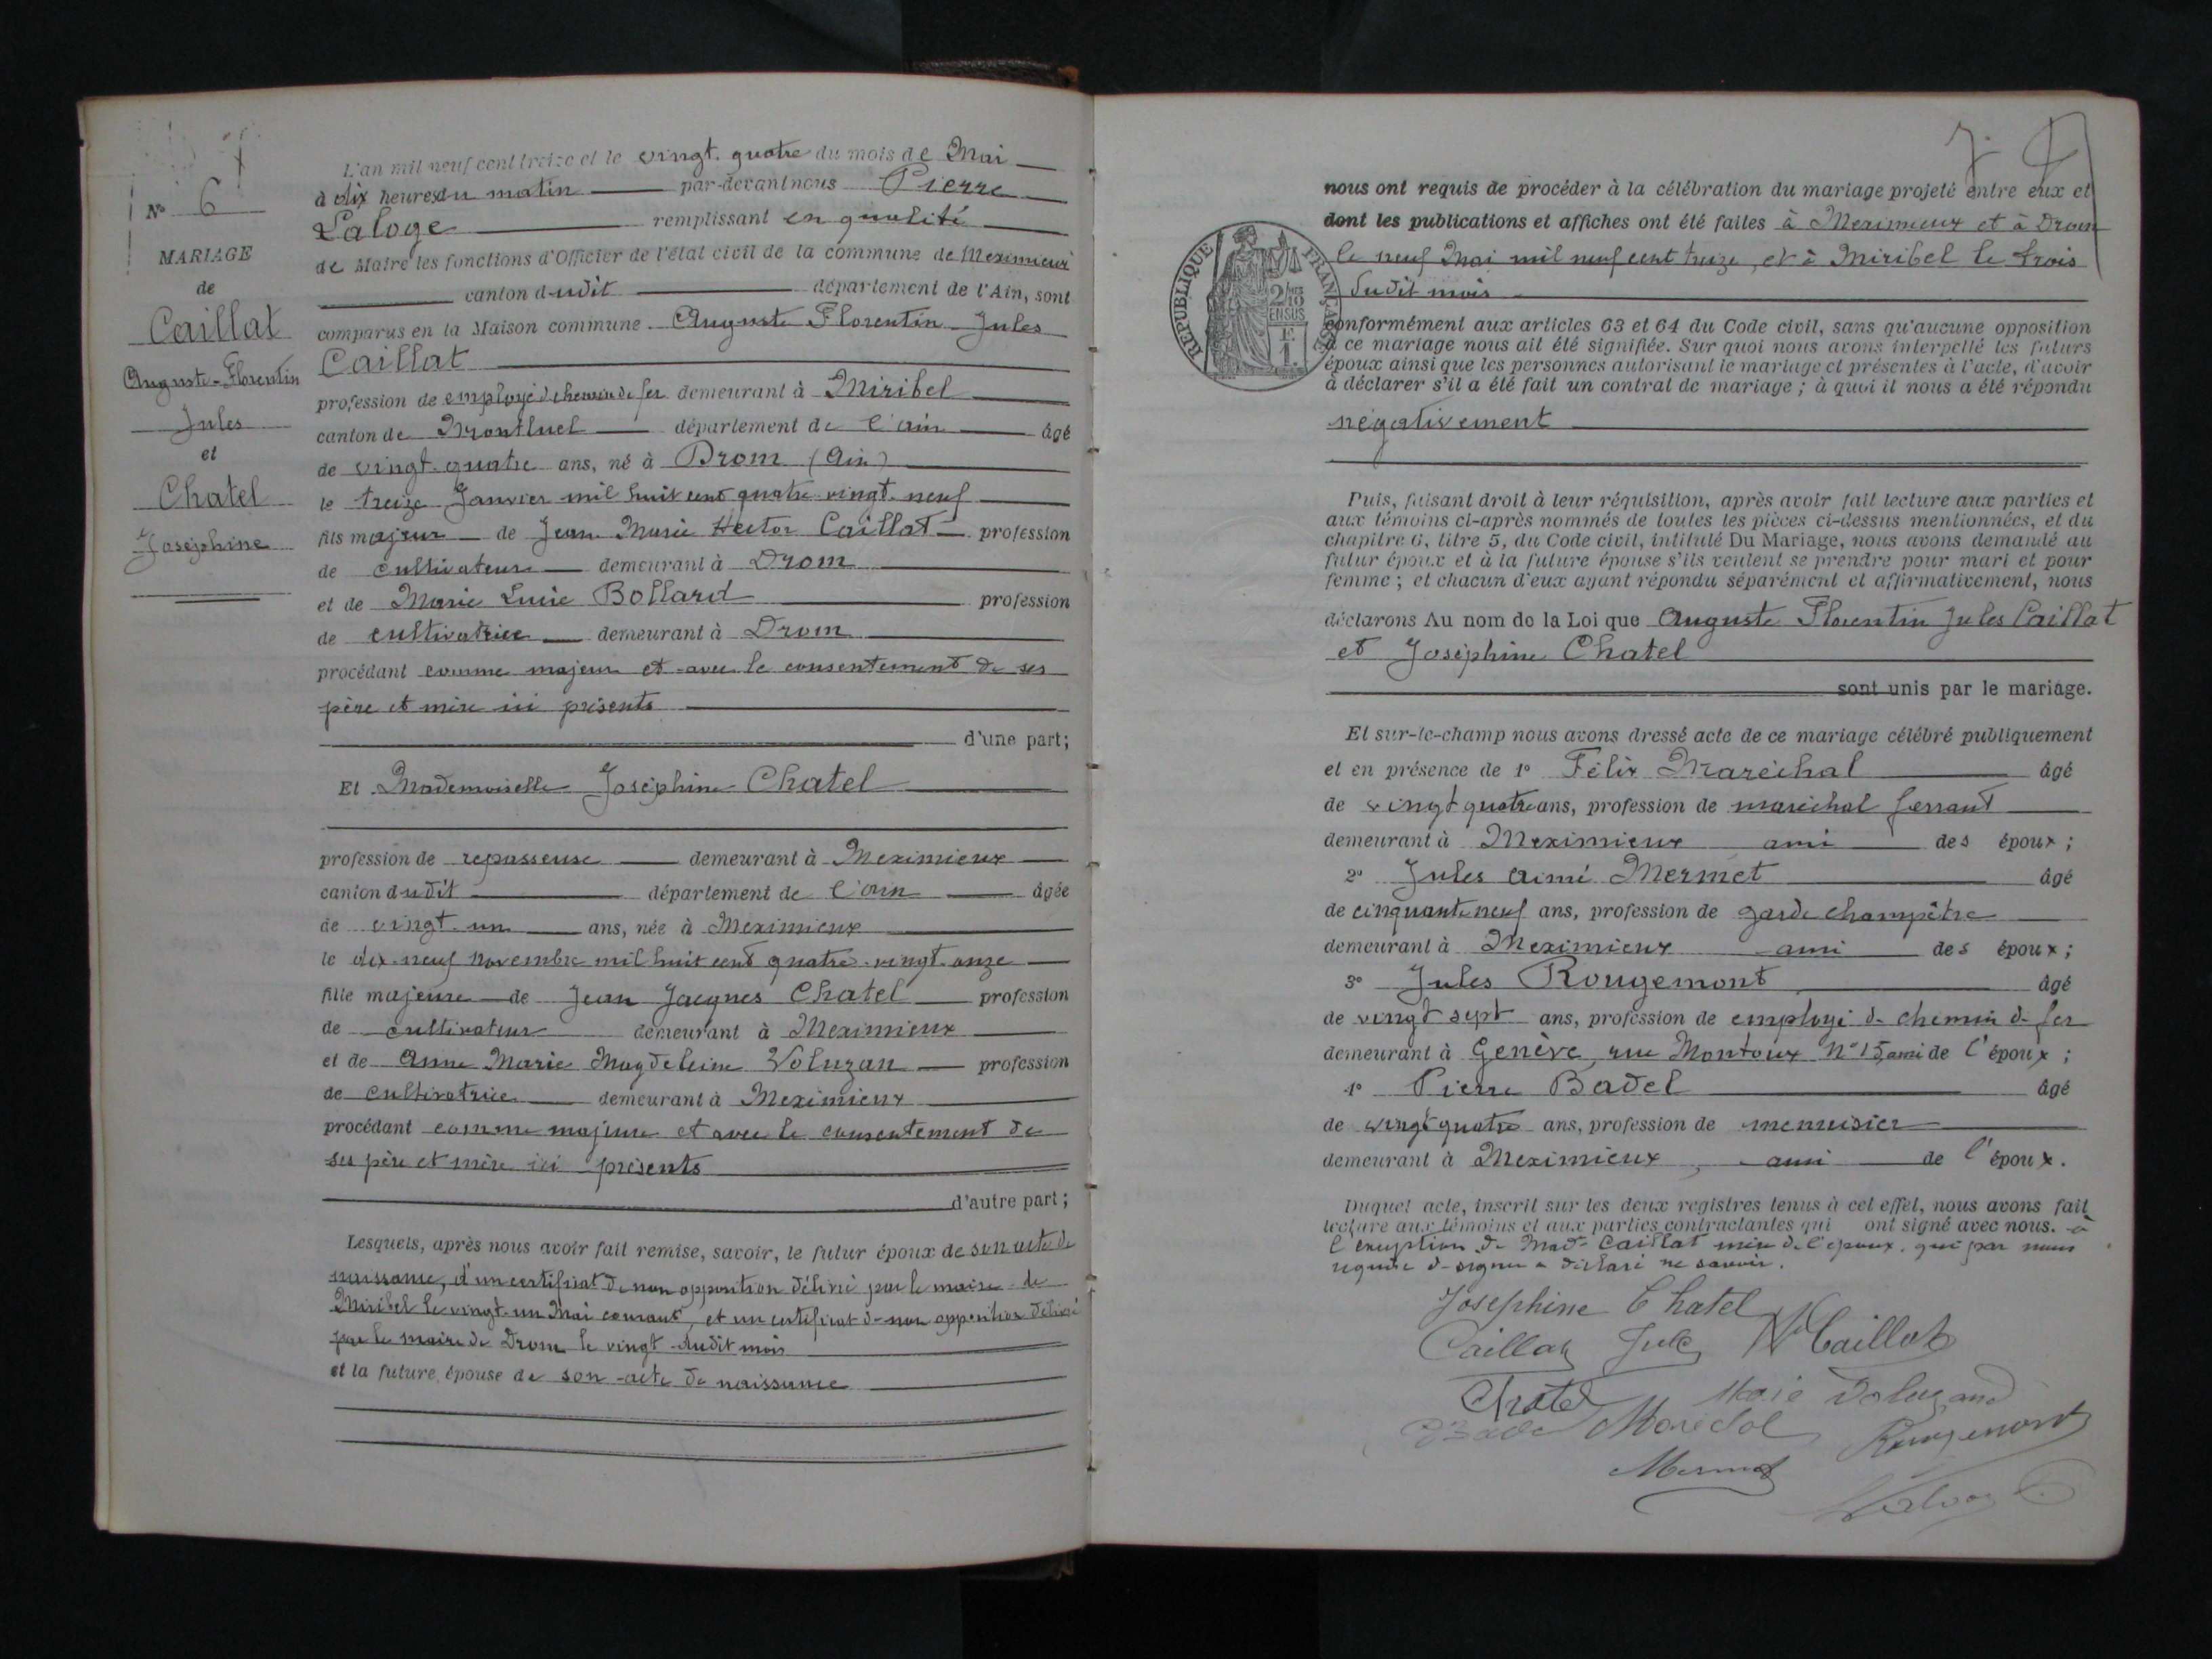 N° 6
MARIAGE
de
Caillat
Auguste-Florentin
Jules
et
Chatel
Joséphine
L'an mil neuf cent treize et le vingt-quatre du mois de Mai
à dix heures du matin par-devant nous Pierre
Laloge remplissant en qualité
de Maire les fonctions d'Officier de l'état civil de la commune de Meximieux
canton dudit département de l'Ain, sont
comparus en la Maison commune Auguste Florentin Jules
Caillat
profession de employé de chemin de fer demeurant à Miribel
canton de Montluel département de l'ain âgé
de vingt-quatre ans, né à Drom (Ain)
le treize Janvier mil huit cent quatre-vingt-neuf
fils majeur de Jean Marie Hector Caillat profession
de cultivateur demeurant à Drom
et de Marie Lucie Bollard profession
de cultivatrice demeurant à Drom
procédant comme majeur et avec le consentement de ses
père et mère ici présents
d'une part;
Et Mademoiselle Joséphine Chatel
profession de repasseuse demeurant à Meximieux
canton dudit département de l'ain âgée
de vingt-un ans, née à Meximieux
le dix-neuf Novembre mil huit cent quatre-vingt-onze
fille majeure de Jean Jacques Chatel profession
de cultivateur demeurant à Meximieux
et de Anne Marie Magdeleine Voluzan profession
de cultivatrice demeurant à Meximieux
procédant comme majeure et avec le consentement de
ses père et mère ici présents
d'autre part;
Lesquels, après nous avoir fait remise, savoir, le futur époux de son acte de
naissance, d'un certificat de non opposition délivré par le maire de
Miribel le vingt-un Mai courant, et un certificat de non opposition délivré
par le maire de Drom le vingt dudit mois
et la future épouse de son acte de naissance
nous ont requis de procéder à la célébration du mariage projeté entre eux et
dont les publications et affiches ont été faites à Meximieux et à Drom
le neuf Mai mil neuf cent treize, et à Miribel le trois
dudit mois
RÉPUBLIQUE FRANÇAISE
conformément aux articles 63 et 64 du Code civil, sans qu'aucune opposition
à ce mariage nous ait été signifiée. Sur quoi nous avons interpellé les futurs
époux ainsi que les personnes autorisant le mariage et présentes à l'acte, d'avoir
à déclarer s'il a été fait un contrat de mariage ; à quoi il nous a été répondu
négativement
Puis, faisant droit à leur réquisition, après avoir fait lecture aux parties et
aux témoins ci-après nommés de toutes les pièces ci-dessus mentionnées, et du
chapitre 6, titre 5, du Code civil, intitulé Du Mariage, nous avons demandé au
futur époux et à la future épouse s'ils veulent se prendre pour mari et pour
femme ; et chacun d'eux ayant répondu séparément et affirmativement, nous
déclarons Au nom de la Loi que Auguste Florentin Jules Caillat
et Joséphine Chatel
sont unis par le mariage.
Et sur-le-champ nous avons dressé acte de ce mariage célébré publiquement
et en présence de 1° Félix Maréchal âgé
de vingt quatre ans, profession de maréchal ferrant
demeurant à Meximieux ami des époux ;
2° Jules Aimé Mermet âgé
de cinquante neuf ans, profession de garde champêtre
demeurant à Meximieux ami des époux ;
3° Jules Rougemont âgé
de vingt sept ans, profession de employé de chemin de fer
demeurant à Genève, rue Montoux N° 15, ami de l'époux ;
4° Pierre Badel âgé
de vingt quatre ans, profession de menuisier
demeurant à Meximieux, ami de l'époux.
Duquel acte, inscrit sur les deux registres tenus à cet effet, nous avons fait
lecture aux témoins et aux parties contractantes qui ont signé avec nous. à
l'exception de Made Caillat mère de l'époux, qui par nous
requise de signer a déclaré ne savoir.
Joséphine Chatel
Caillat Jules Caillat
Chatel
Rougemont
Mermet